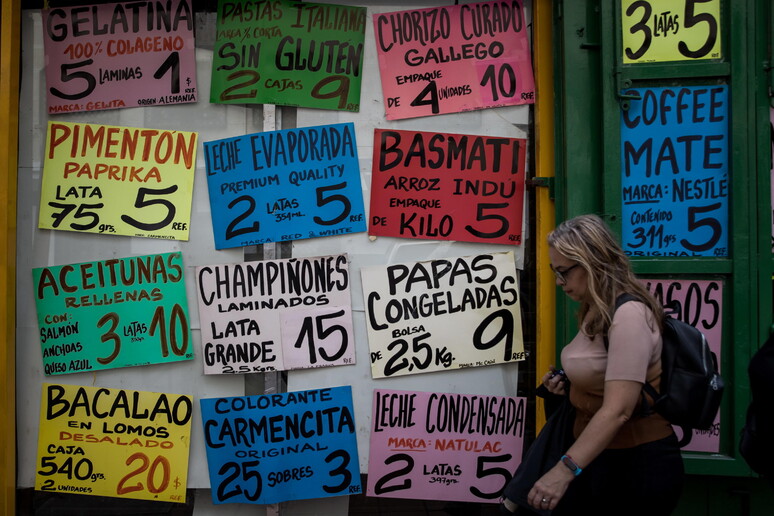 GELATINA
100% COLÁGENO
5 LAMINAS 1$
MARCA: GELITA ORIGEN ALEMANIA
PASTAS ITALIANA
HARINA % CORTA
SIN GLUTEN
2 CAJAS 9
REF.
CHORIZO CURADO
GALLEGO
EMPAQUE
DE 4 UNIDADES 10
REF.
3 LATAS 5
REF.
PIMENTÓN
PAPRIKA
LATA
75 grs. 5
REF.
MARCA: CARMENCITA
LECHE EVAPORADA
PREMIUM QUALITY
2 LATAS 5
354ML
REF.
MARCA: RED & WHITE
BASMATI
ARROZ INDU
EMPAQUE
DE KILO 5
REF.
COFFEE
MATE
MARCA: NESTLÉ
CONTENIDO
311grs 5
REF.
ORIGINAL
ACEITUNAS
RELLENAS
CON:
SALMON
ANCHOAS
QUESO AZUL
3 LATAS 10
350gr.
REF.
CHAMPIÑONES
LAMINADOS
LATA
GRANDE 15
2,5 Kgrs.
REF.
PAPAS
CONGELADAS
BOLSA
DE 2,5 KG. 9
REF.
MARCA: MC CAIN
BACALAO
EN LOMOS
DESALADO
CAJA
540grs. 20.
2 UNIDADES $
COLORANTE
CARMENCITA
ORIGINAL
25 SOBRES 3
REF.
LECHE CONDENSADA
MARCA: NATULAC
2 LATAS 5
397grs.
REF.